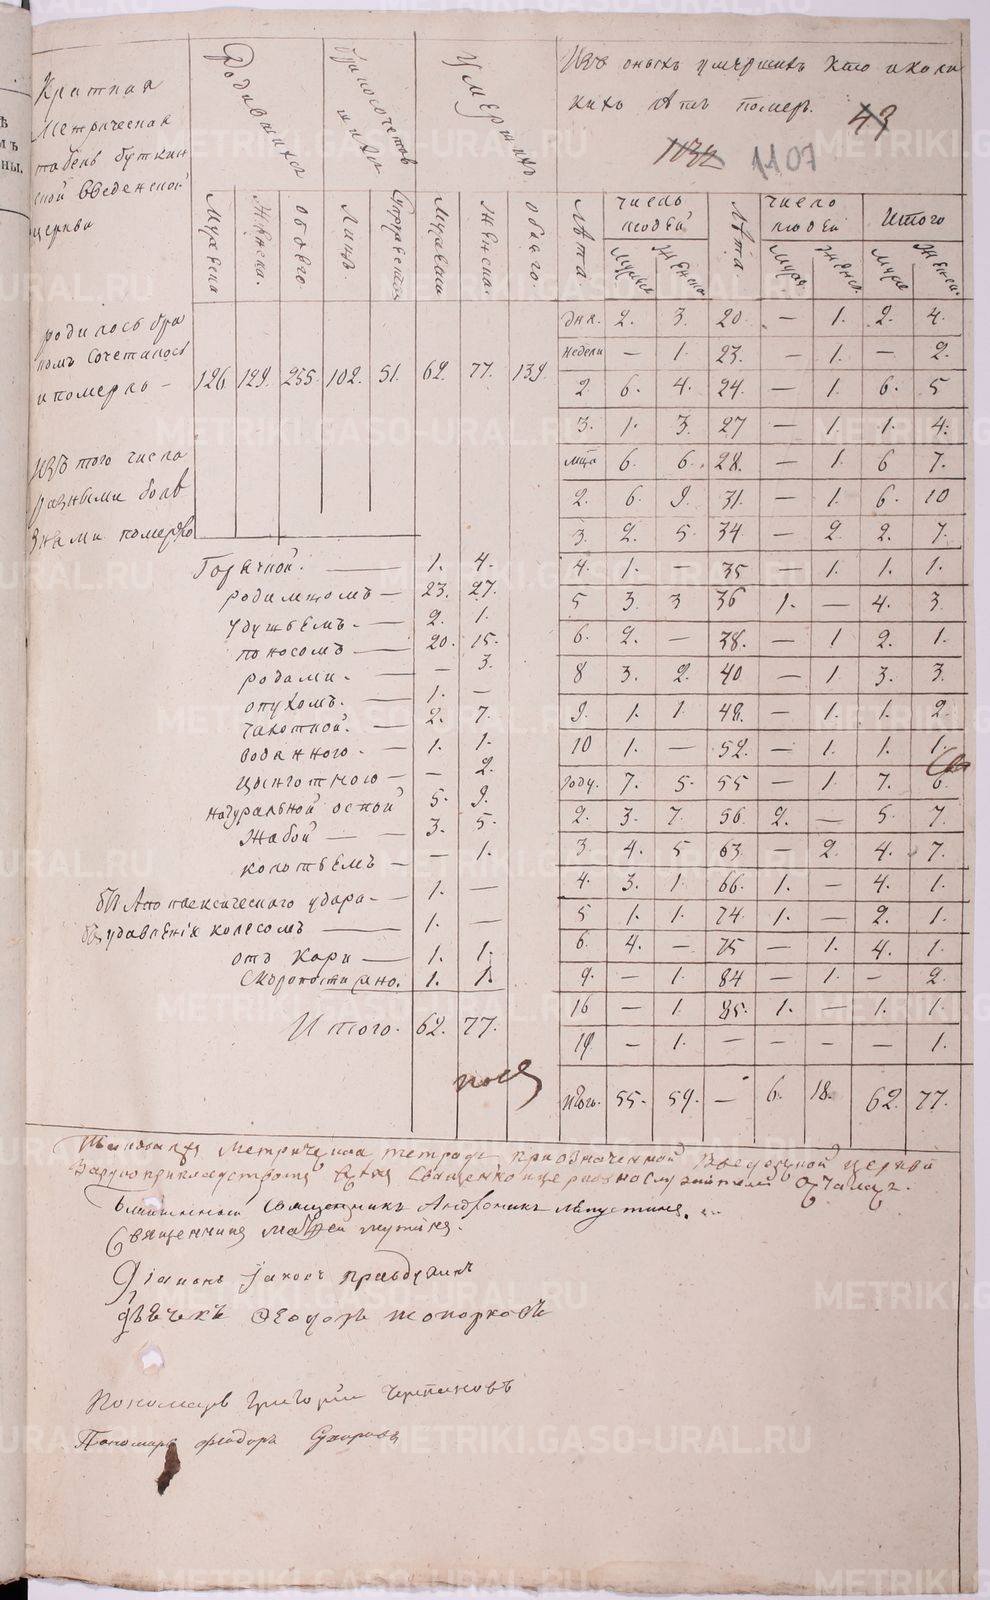 Краткая
Метрическая
табель буткин
ской Введенской
церкви
Родившихся
Умерших
Изъ оныхъ умершихъ кто и коли
кихъ летъ померъ.
43
1107
Мужеска
Женска.
обоего
Лицъ.
Мужеска
Женска.
обоего.
Лета.
число людей
Лета.
число людей
Итого
Муже
Женс.
Муже
Женс.
Муже
Женс.
родилось бра
комъ сочеталось
и померло — 126. 129. 255. 102. 51. 62. 77. 139.
Изъ того числа
разными боле
знами померло
Горячкой. — 1. 4.
родимцомъ — 23. 27.
удушьемъ. — 2. 1.
поносомъ — 20. 15.
родами. — — 3.
опухомъ. — 1. —
чахоткой. — 2. 7.
водяного. — 1. 1.
цынготною — — 2.
натуральной оспой 5. 9.
Жабой — 3. 5.
колотьемъ — — 1.
Апоплексического удара. — 1. —
колесомъ — 1. —
отъ Кори — 1. 1.
Скоропостижно. 1. 1.
Итого. 62. 77.
дни. 2. 3. 20. — 1. 2. 4.
недели — 1. 23. — 1. — 2.
2 6. 4. 24. — 1. 6. 5
3. 1. 3. 27 — 1. 1. 4.
мца 6. 6. 28. — 1. 6 7.
2. 6. 9. 31. — 1. 6. 10
3. 2. 5. 34 — 2 2. 7.
4. 1. — 35 — 1. 1. 1.
5 3. 3 36 1. — 4. 3.
6. 2. — 38. — 1 2. 1.
8 3. 2. 40 — 1 3. 3.
9. 1. 1 48. — 1. 1. 2
10 1. — 52. — 1. 1. 1.
году. 7. 5. 55 — 1 7. 6.
2. 3. 7. 56. 2. — 5. 7.
3. 4. 5 63. — 2 4. 7.
4. 3. 1. 66. 1. — 4. 1.
5 1. 1. 74. 1. — 2. 1.
6. 4. — 75 — 1. 4. 1.
9. — 1. 84 — 1. — 2.
16 — 1. 85. 1. — 1. 1.
19. — 1. — — — — 1.
Итого. 55. 59. — 6. 18. 62. 77.
Метрическая тетрадь при означенной Введенской церкви
священноцерковнослужители
Священникъ Андроникъ Лапустинъ.
Священникъ Матфей
Диаконъ Iаковъ
Дьячекъ Феодоръ Топорковъ
Пономарь Григорий Черепановъ
Пономарь Феодоръ
METRIKI.GASO-URAL.RU